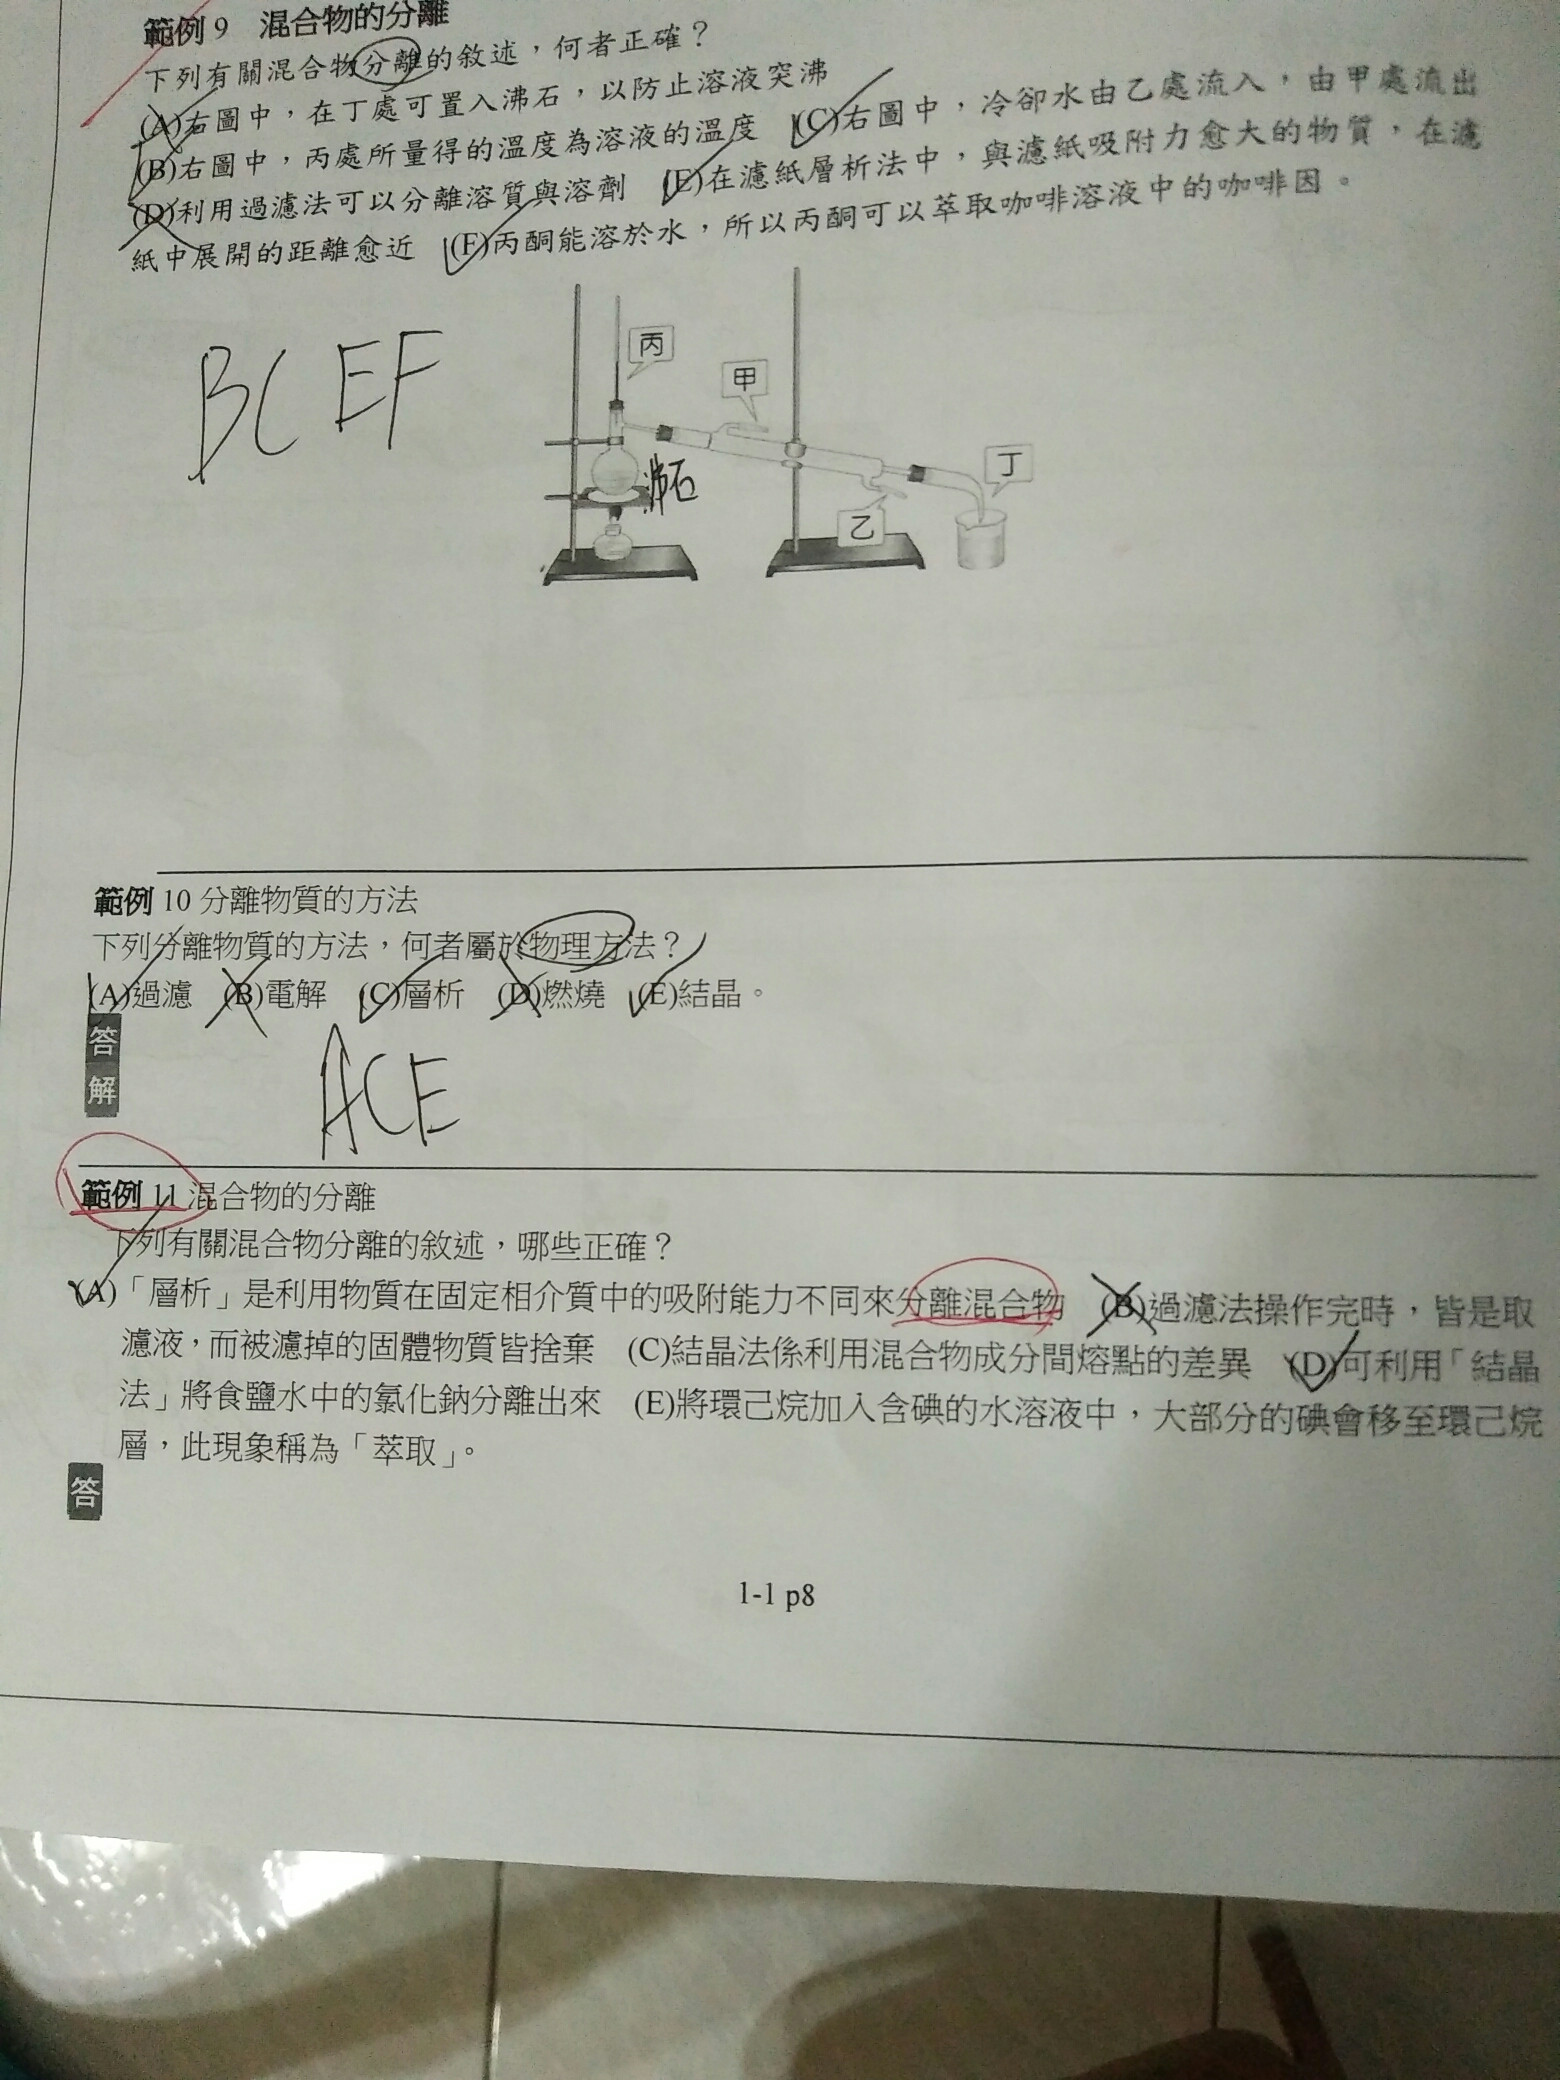 範例9 混合物的分離
下列有關混合物分離的敘述，何者正確？
(A)右圖中，在丁處可置入沸石，以防止溶液突沸
(B)右圖中，丙處所量得的溫度為溶液的溫度 (C)右圖中，冷卻水由乙處流入，由甲處流出
(D)利用過濾法可以分離溶質與溶劑 (E)在濾紙層析法中，與濾紙吸附力愈大的物質，在濾
紙中展開的距離愈近 (F)丙酮能溶於水，所以丙酮可以萃取咖啡溶液中的咖啡因。
BCEF
丙
甲
丁
沸石
乙
範例10分離物質的方法
下列分離物質的方法，何者屬於物理方法？
(A)過濾 (B)電解 (C)層析 (D)燃燒 (E)結晶。
答
解
ACE
範例11混合物的分離
下列有關混合物分離的敘述，哪些正確？
(A)「層析」是利用物質在固定相介質中的吸附能力不同來分離混合物 (B)過濾法操作完時，皆是取
濾液，而被濾掉的固體物質皆捨棄 (C)結晶法係利用混合物成分間熔點的差異 (D)可利用「結晶
法」將食鹽水中的氯化鈉分離出來 (E)將環己烷加入含碘的水溶液中，大部分的碘會移至環己烷
層，此現象稱為「萃取」。
答
1-1 p8